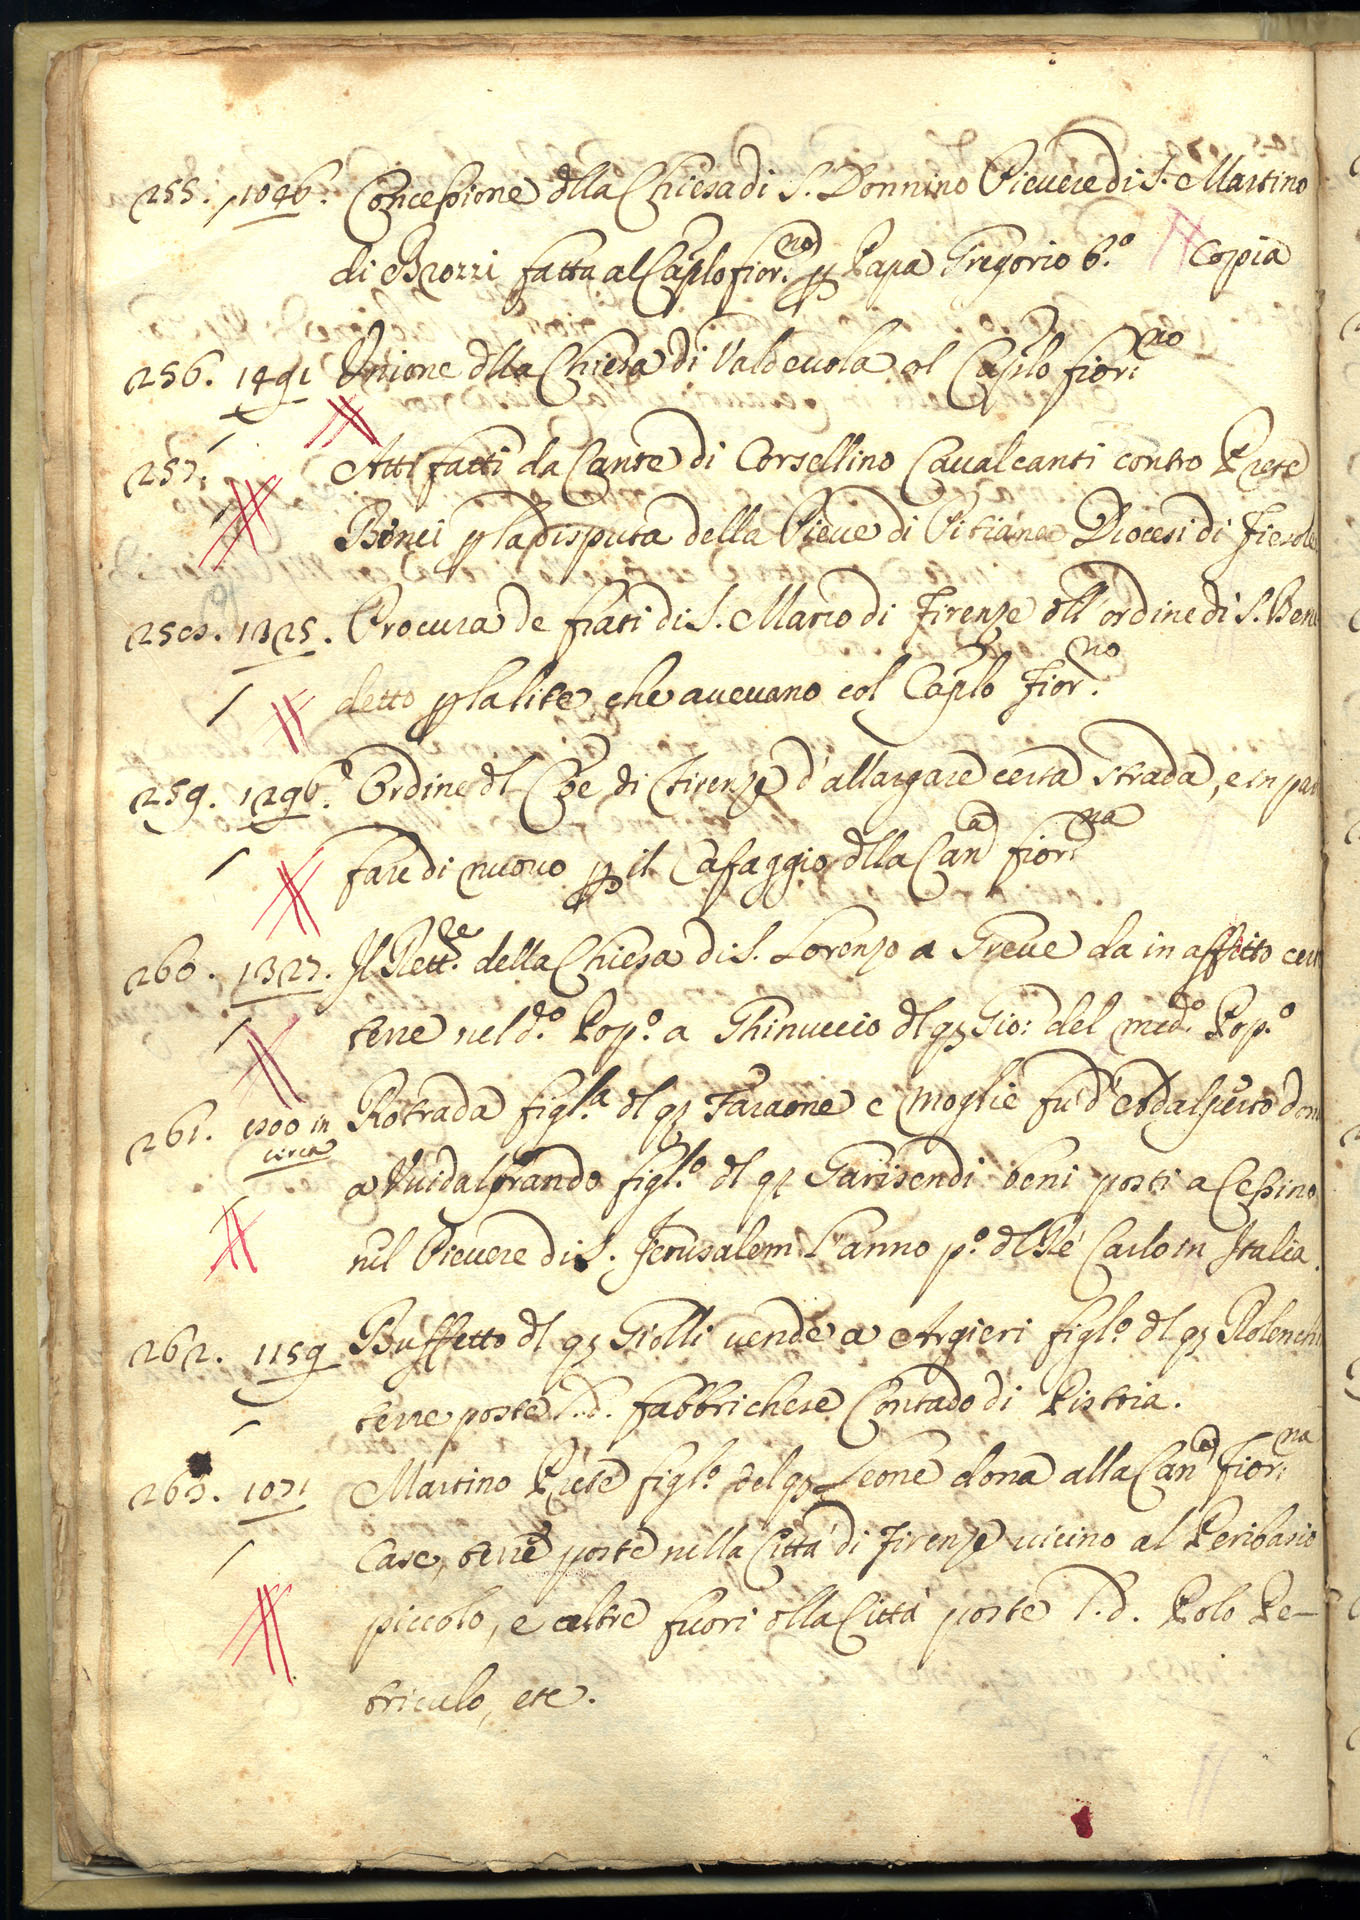 255. 1046. Concessione dlla Chiesa di S. Donnino Pievere di S. Martino
di Brozzi fatta al Caplo fior.no p Papa Gregorio 6.o Copia
256. 1491 Unione dlla Chiesa di Valdevola al Caplo fior:no
257. Atti fatti da Cante di Corsellino Cavalcanti contro Prete
Benci p la disputa della Pieve di Pitiana Diocesi di Fiesole
258. 1325. Procura de frati di S. Marco di Firenze dll' ordine di S. Bene
detto p la lite che avevano col Caplo Fior.no
259. 1296. Ordine dl Coe di Firenze d'allargare certa strada, e in par
fare di nuovo p il Cafaggio dlla Can.a fior.na
260. 1327. Il Rett.re della Chiesa di S. Lorenzo a Greve da in affitto cert
terre nel d.o Pop.o a Ghinuccio dl q Gio: del med.o Pop.o
261. 800 in
circa Rotrada figl.a dl q Faraone e moglie fu d'Odalperto don
a Vuidalprando figl.o dl q Garisendi beni posti a Cessino
nel Pievere di S. Jerusalem l'anno p.o dl Rè Carlo in Italia.
262. 1159 Buffetto dl q Giolli vende a Argieri figl.o dl q Rolenchi
terre poste l.d. Fabbrichese Contado di Pistoia.
263. 1071 Martino Prete figl.o del q Leone dona alla Can.a Fior:na
Case, terre poste nella Città di Firenze vicino al Peribasio
piccolo, e altre fuori dlla Città poste l.d. Polo Pe-
triculo, etc.